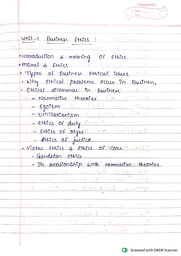 Unit-1 Business Ethics :
• Introduction & meaning of Ethics
• Moral & Ethics
• Types of Business ethical issues
• Why ethical problems occur in Business,
• Ethical dilemmas in business
– Normative theories
– Egoism
– Utilitarianism
– Ethics of duty
– Ethics of right
– Ethics of justice
• Virtue ethics & ethics of care
– Gandhian ethics
– Its relationship with normative theories.
Scanned with OKEN Scanner